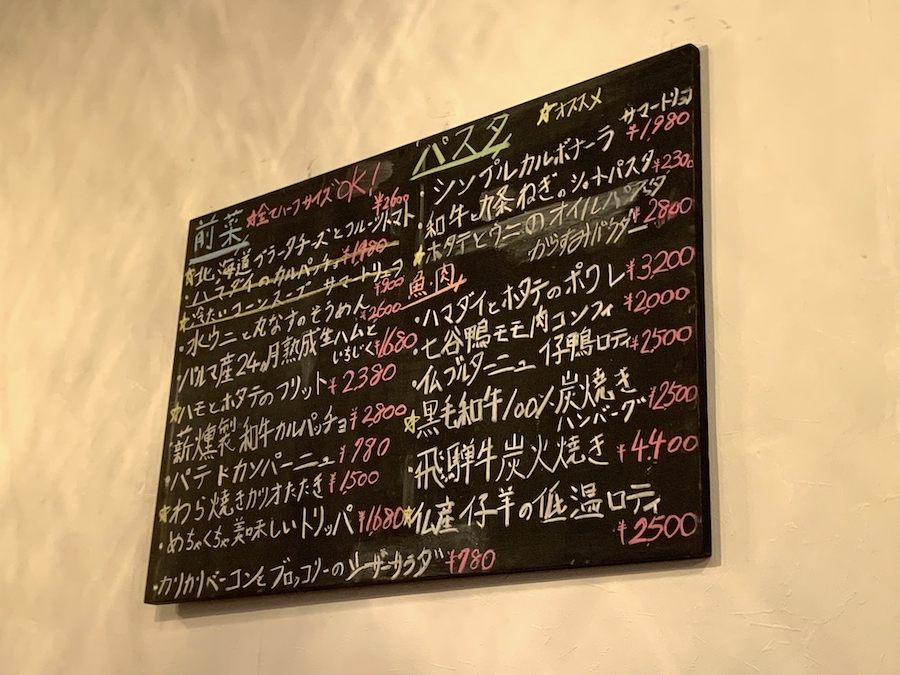 前菜 ☆全てハーフサイズOK!
☆北海道ブラータチーズとフルーツトマト ¥2600
・ハマダイのカルパッチョ ¥1980
☆冷たいコーンスープ サマートリュフ ¥900
・水ウニと丸なすのそうめん ¥2600
パルマ産24ヶ月熟成生ハムと
いちじく ¥1680
☆ハモとホタテのフリット ¥2,380
薪燻製 和牛カルパッチョ ¥2800
・パテドカンパーニュ ¥780
☆わら焼きカツオたたき ¥1,500
・めちゃくちゃ美味しいトリッパ ¥1,680
・カリカリベーコンとブロッコリーのシーザーサラダ ¥780
パスタ ☆オススメ
・シンプルカルボナーラ サマートリュフ ¥1,980
・和牛と九条ねぎのショートパスタ ¥2300
☆ホタテとウニのオイルパスタ
からすみパウダー ¥2800
魚・肉
・ハマダイとホタテのポワレ ¥3,200
・七谷鴨モモ肉コンフィ ¥2,000
・仏ブルターニュ 仔鴨ロティ ¥2500
☆黒毛和牛100%炭焼き
ハンバーグ ¥2500
・飛騨牛炭火焼き ¥4,400
☆仏産仔羊の低温ロティ
¥2500